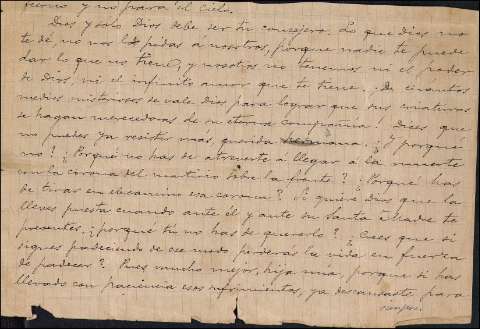 y no para el Cielo.
Dios y solo Dios debe ser tu consejero. Lo que Dios no
te dé, no nos lo pidas á nosotros, porque nadie te puede
dar lo que no tiene, y nosotros no tenemos ni el poder
de Dios, ni el infinito amor que te tiene. ¡De cuantos
medios misteriosos se vale Dios para lograr que sus criaturas
se hagan merecedoras de su eterna compañia! Dices que
no puedes ya resistir más, querida hermana. ¿Y porqué
no? ¿Porqué no has de atreverte á llegar á la muerte
con la corona del martirio sobre la frente? ¿Porqué has
de tirar en el camino esa corona? Si quiere Dios que la
lleves puesta cuando ante él y ante su Santa Madre te
presentes, ¿porqué tú no has de quererlo? ¿Crees que si
sigues padeciendo de ese modo perderás la vida en fuerza
de padecer? Pues mucho mejor, hija mia, porque si has
llevado con paciencia esos sufrimientos, ya descansaste para
siempre.